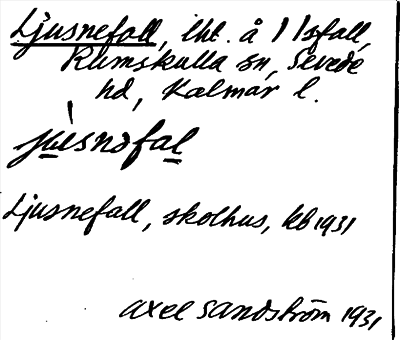 Ljusnefall, lht. å 1 Isfall,
Rumskulla sn, Sevede
hd, Kalmar l.
Ljusnefall, skolhus, kb 1931
Axel Sandström 1931